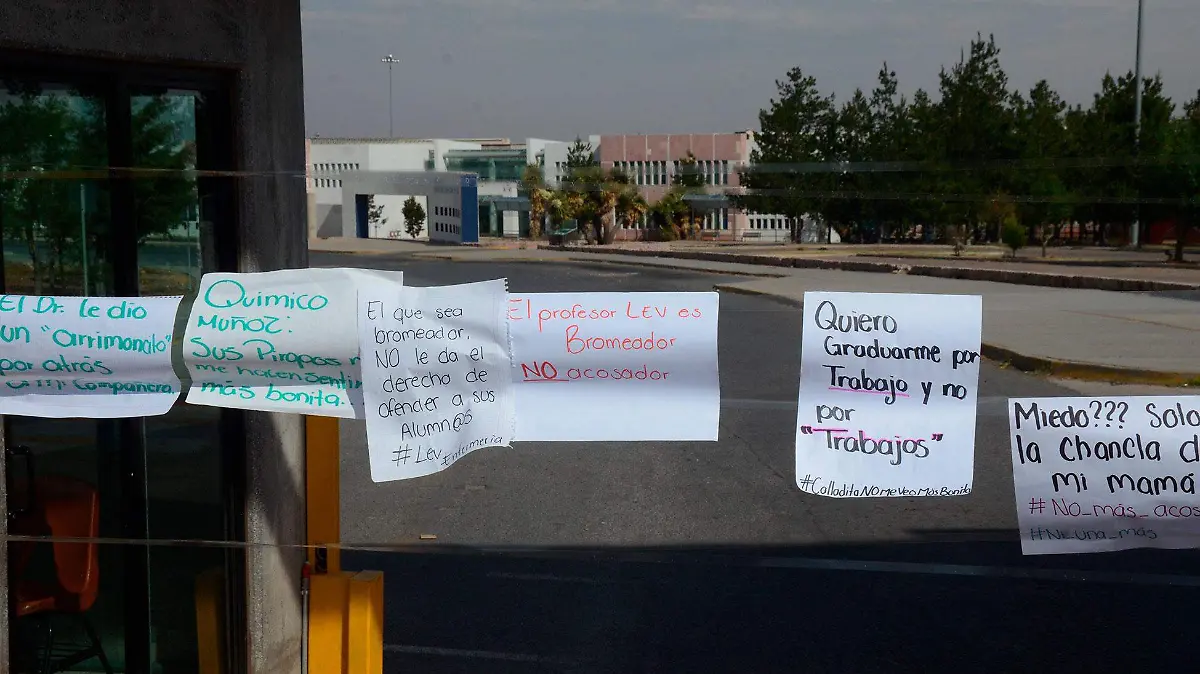 El Dr. le dio
un "arrimonazo"
por atrás
Compañera
Químico
Muñoz:
Sus Piropos
me hacen sentir
más bonita.
El que sea
bromeador,
NO le da el
derecho de
ofender a sus
Alumn@s
#Lev_Enfermería
El profesor LEV es
Bromeador
NO acosador
Quiero
Graduarme por
Trabajo y no
por
"Trabajos"
#CalladitaNOMeVeoMásBonita
Miedo??? Solo
la chancla d
mi mamá
#No_más_acos
#Ni_una_más